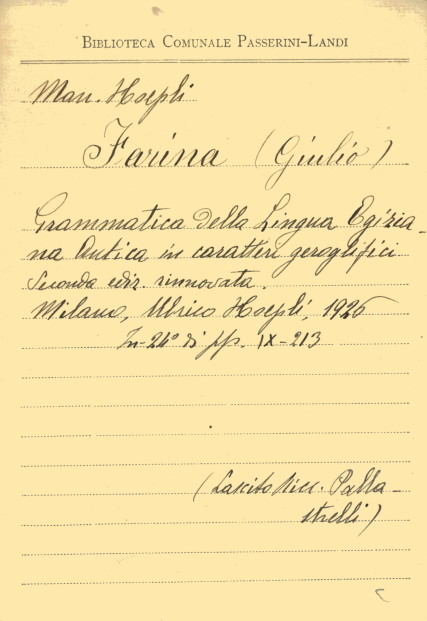 BIBLIOTECA COMUNALE PASSERINI-LANDI
Man. Hoepli
Farina (Giulio)
Grammatica della Lingua Egizia-
na Antica in caratteri geroglifici
Seconda ediz. rinnovata.
Milano, Ulrico Hoepli, 1926
In-24º di pp. IX-213
(Lascito Picc. Palla-
strelli)